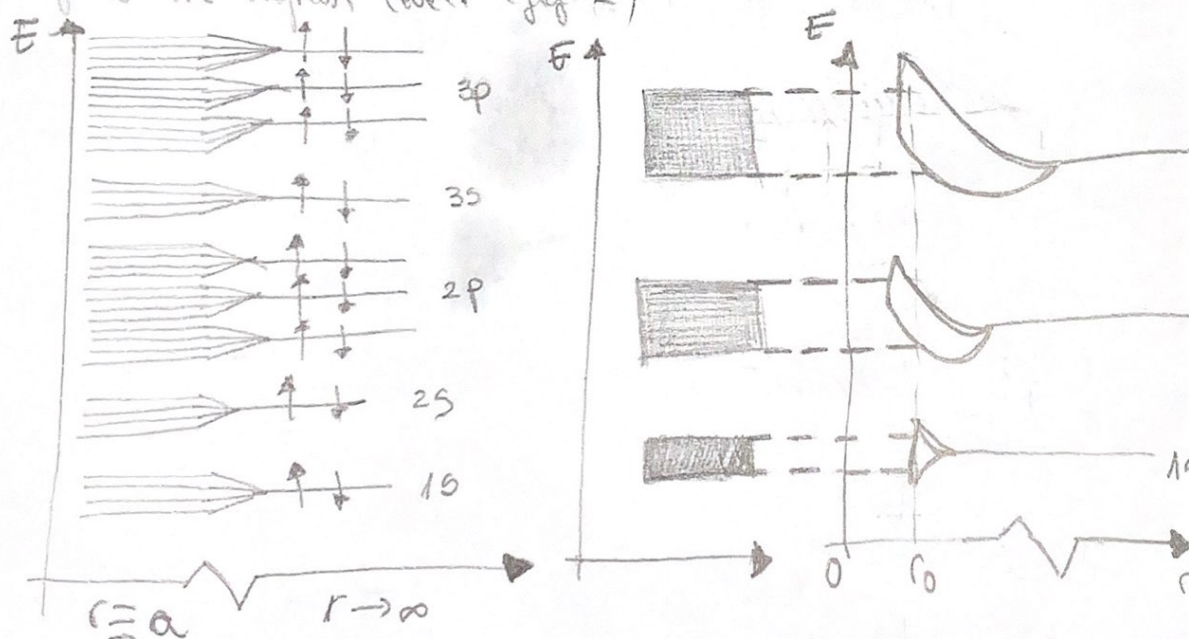 E
3p
3s
2p
2s
1s
r ≡ a
r → ∞
E
E
0
r₀